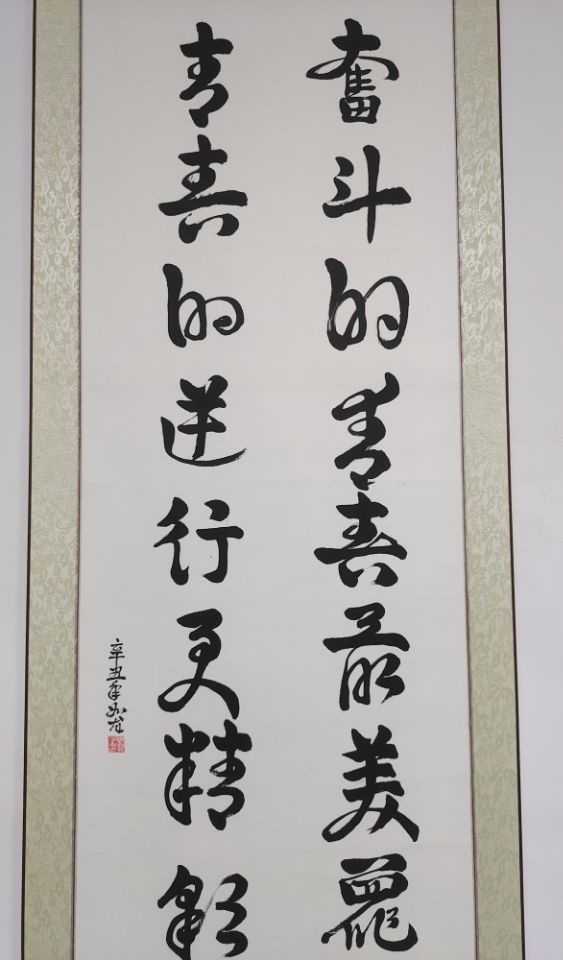 奮斗的青春最美麗
青春的逆行更精彩
辛丑年